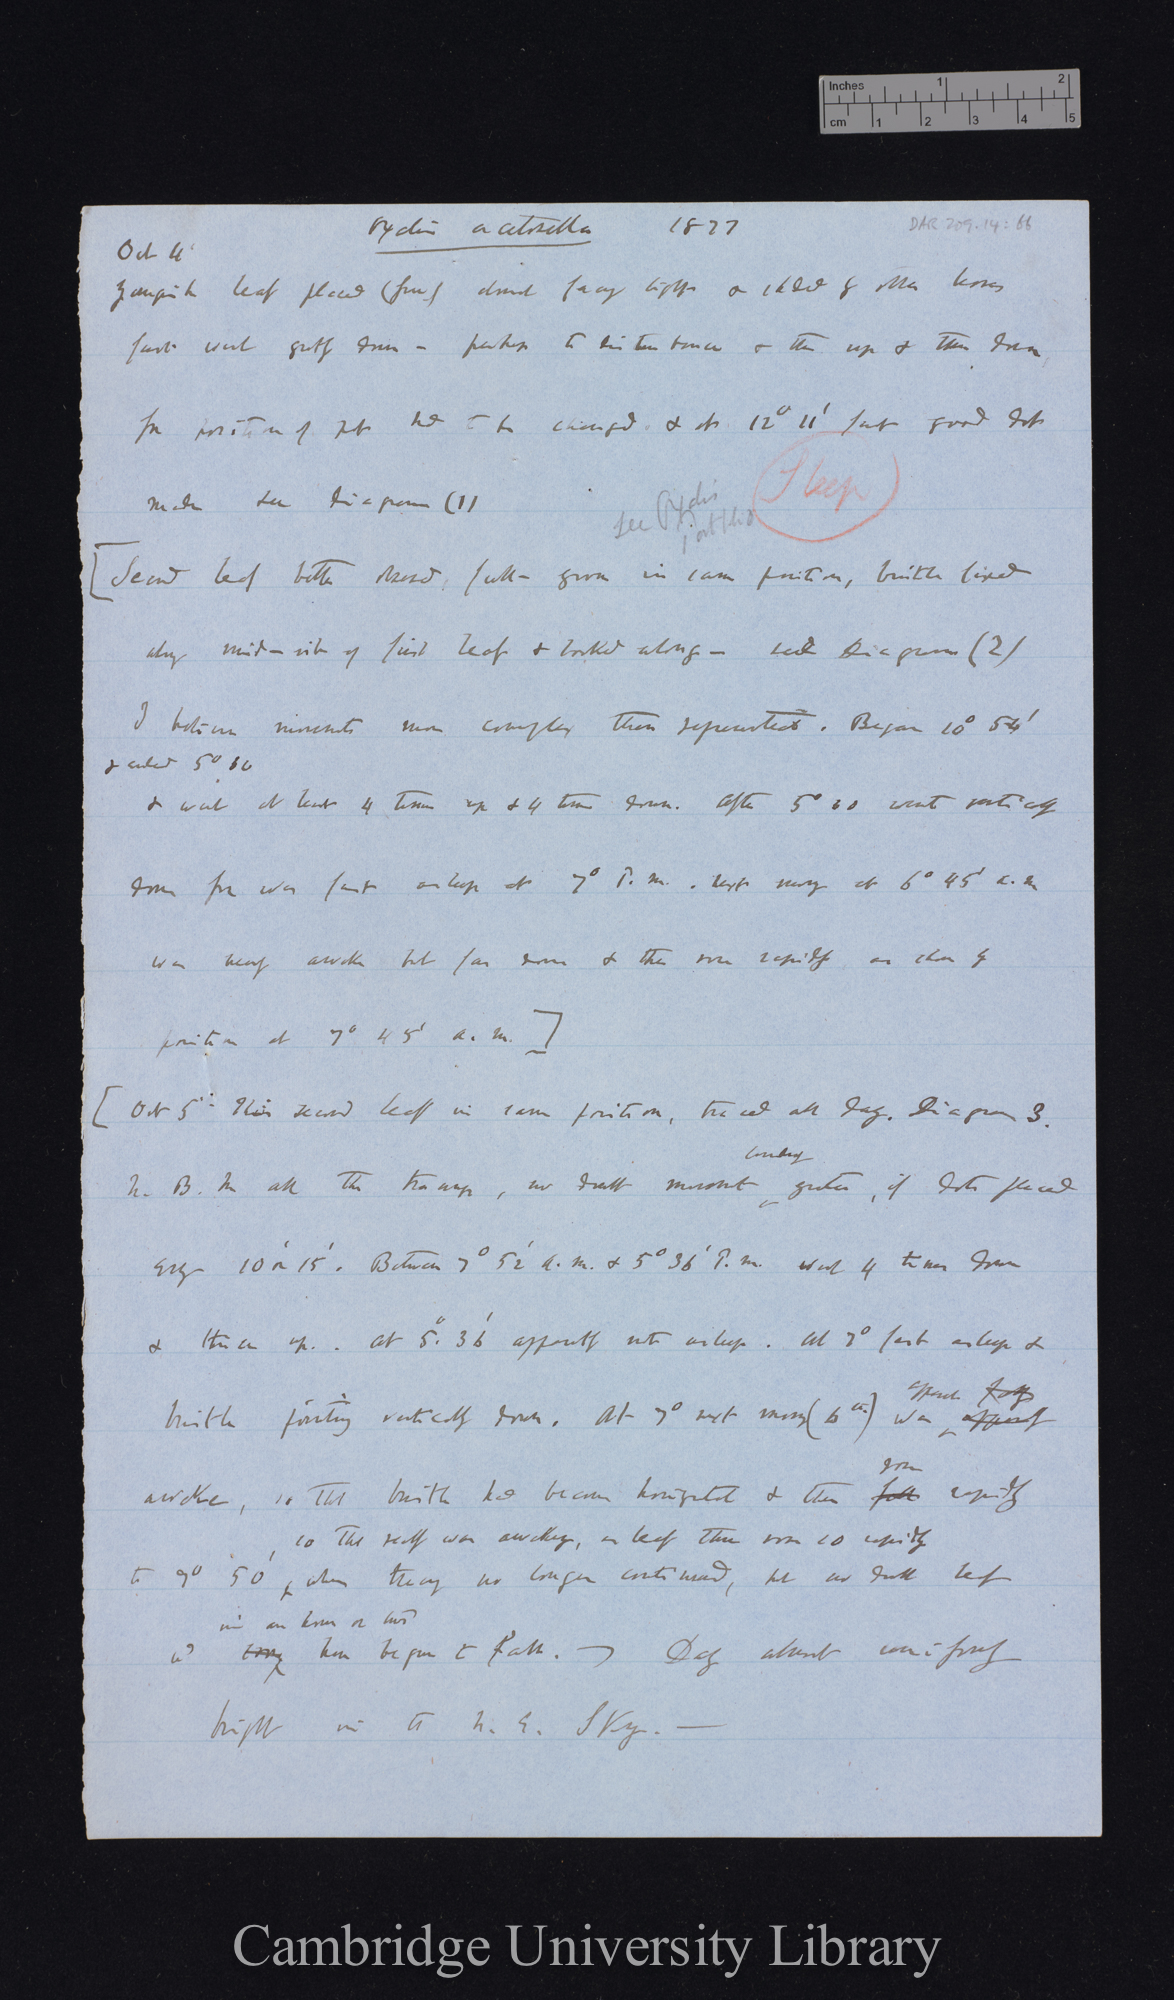 Inches 1 2
cm 1 2 3 4 5
Oxalis acetosella 1877
DAR 209.14: 66
Oct 4
Youngish leaf placed facing light & shaded by other leaves
first went down – perhaps to disturbance & then up & then down,
for position of pot had to be changed. & at 12° 11' first good dot
made see Diagram (1)
Sleep
see Oxalis
Portfolio
[Second leaf better observed, full-grown in same position, bristle fixed
along mid-rib of first leaf & looked along – see Diagram (2)
I believe movements more complex than represented. Began 10° 54'
& ended 5° 60
& went at least 4 times up & 4 times down. After 5° 60 went vertically
down for was fast asleep at 7° P.m. next morng at 6° 45' a.m
was nearly awake but far down & then rose rapidly as shown by
position at 7° 45' a.m.]
[Oct 5 – This second leaf in same position, traced all day. Diagram 3.
N.B. In all the tracings, no doubt movement greater, if dots placed
every 10' or 15'. Between 7° 52' a.m. & 5° 36' P.m. went 4 times down
& thrice up. At 5° 36' apparently not asleep. At 7° fast asleep &
bristle pointing vertically down. At 7° next morng (6th) was
awake, so that bristle had become horizontal & then
rose
rapidly
so that really was awaking, as leaf then rose so rapidly
to 7° 50', when tracing no longer continued, but no doubt leaf
in an hour or two
wd have begun to fall. — Day almost uniformly
bright in to N.E. Sky. —
Cambridge University Library